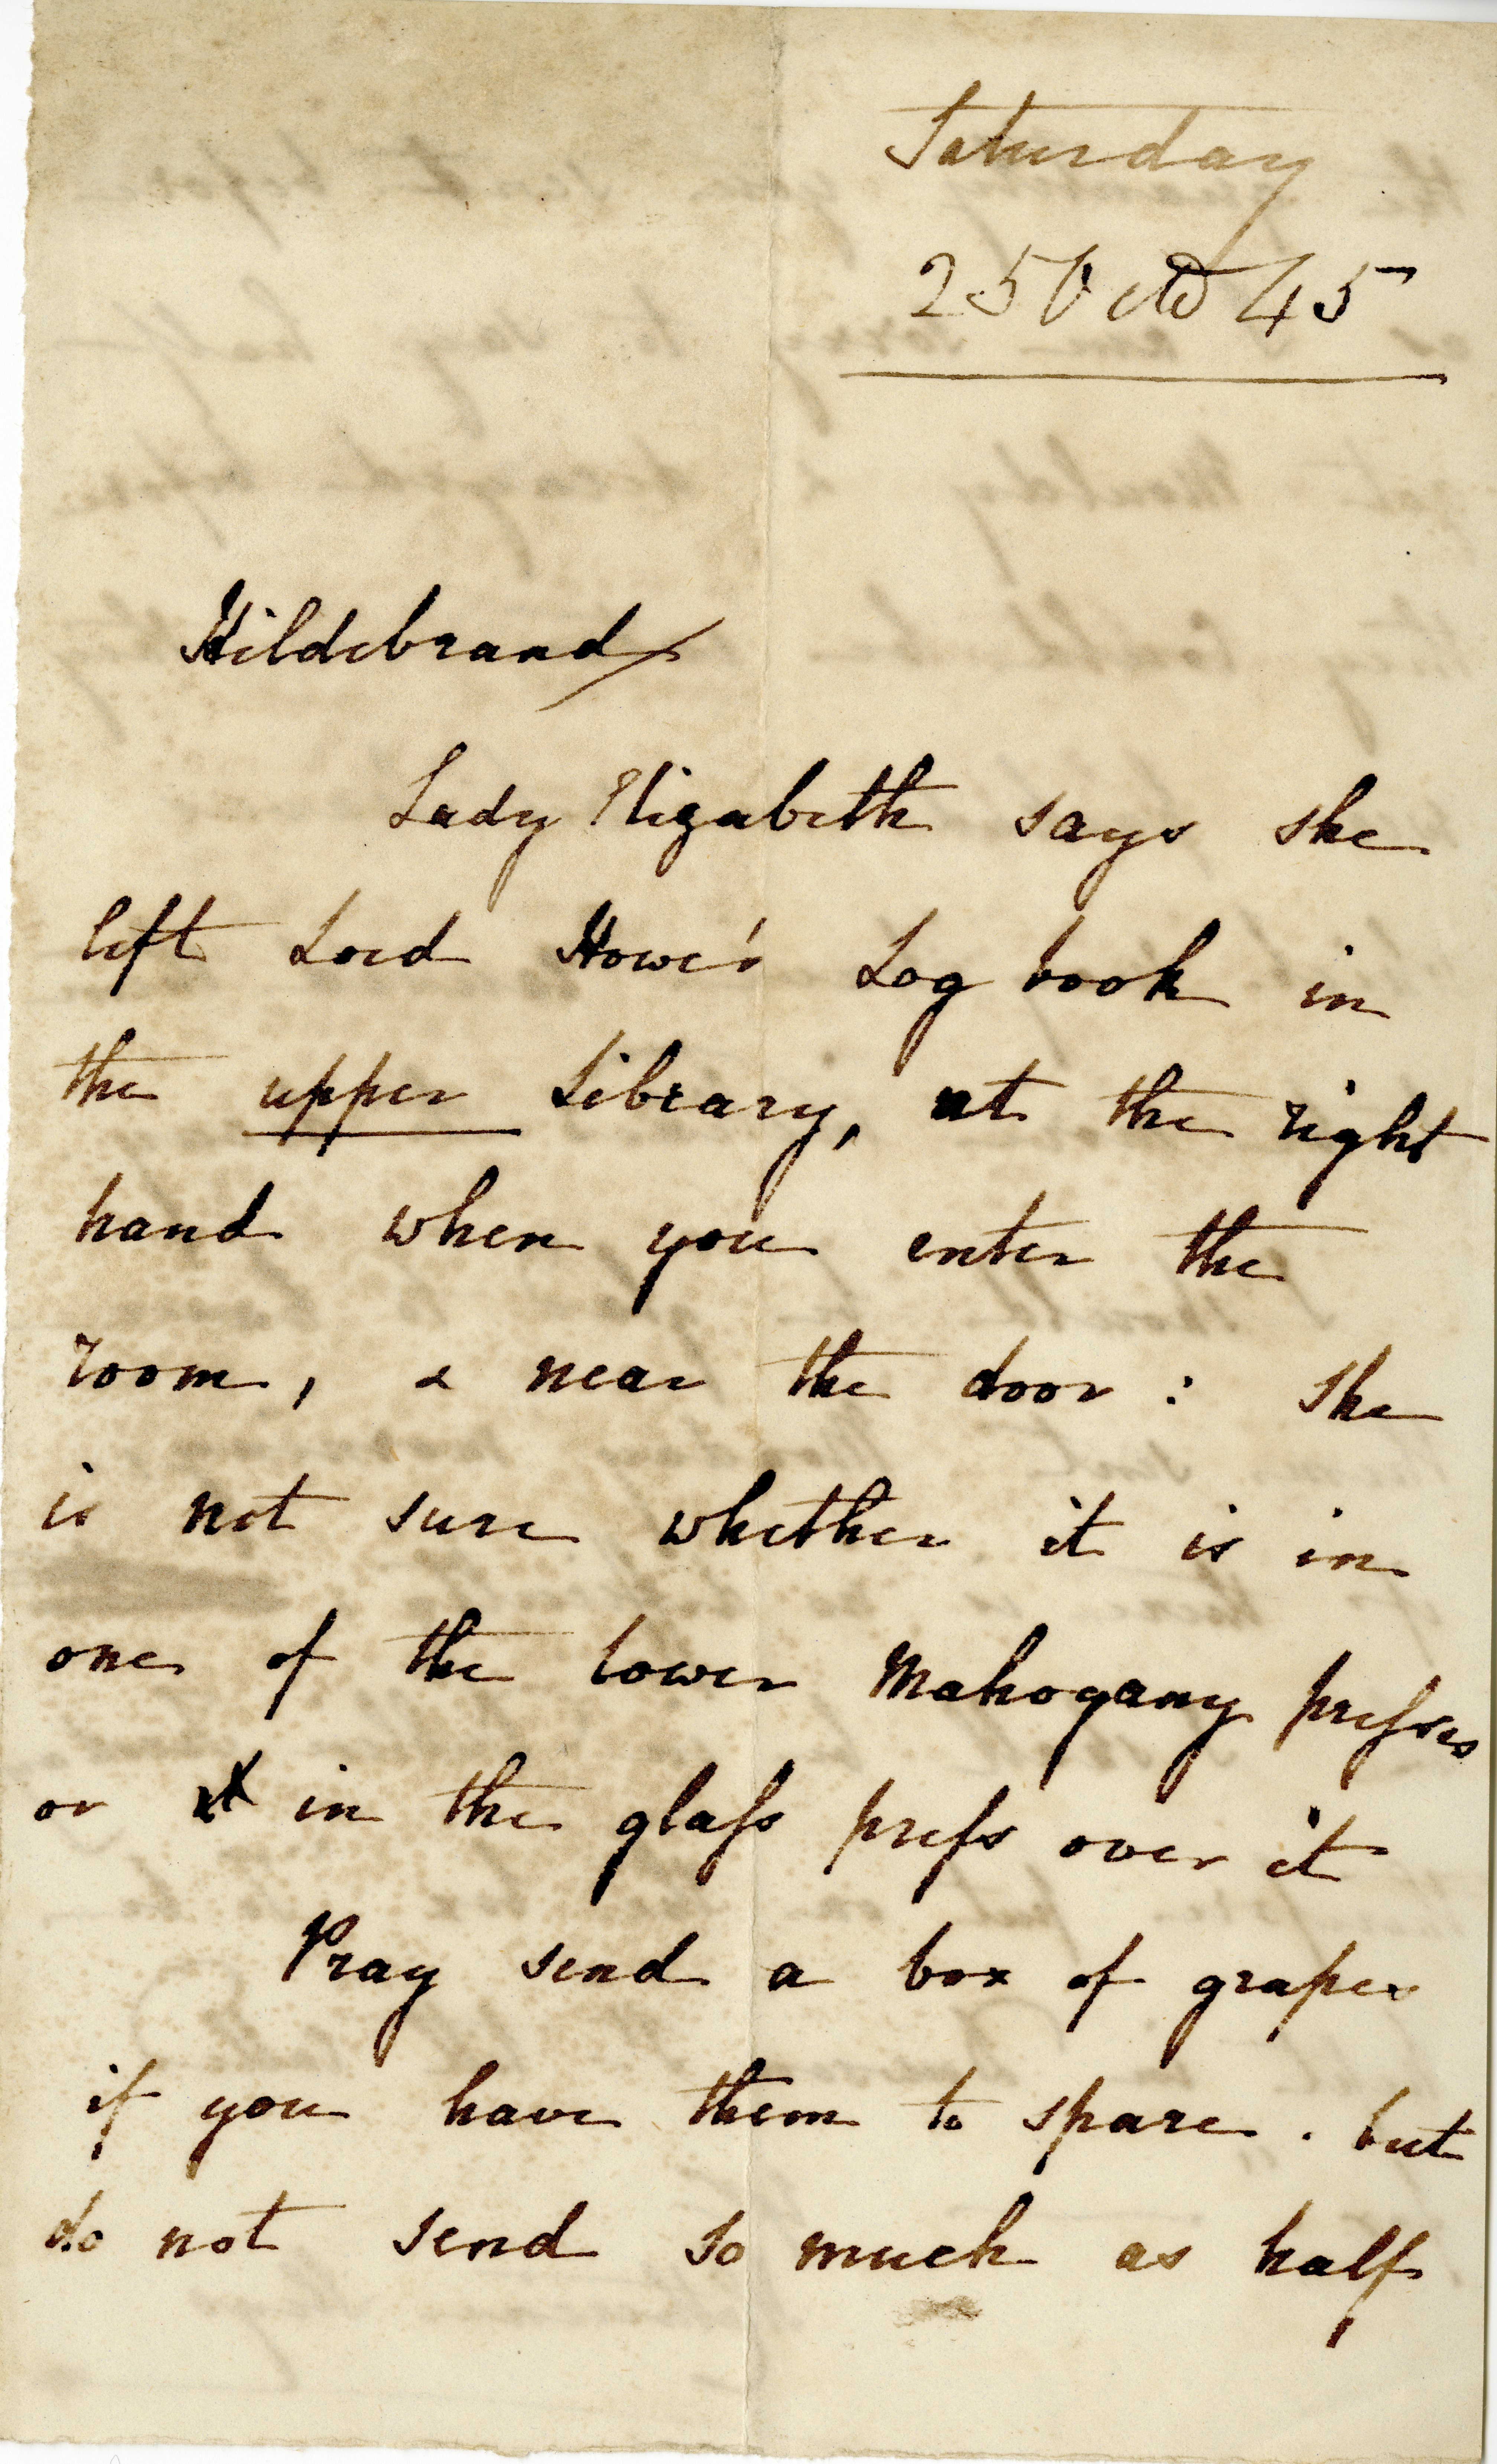 Saturday
25 Octo 45
Hildebrand
Lady Elizabeth says she
left Lord Howe's Log book in
the upper Library, at the right
hand when you enter the
room, & near the door : She
is not sure whether it is in
one of the lower Mahogany preſses
or in the glaſs preſs over it
Pray send a box of grapes
if you have them to spare . but
do not send so much as half